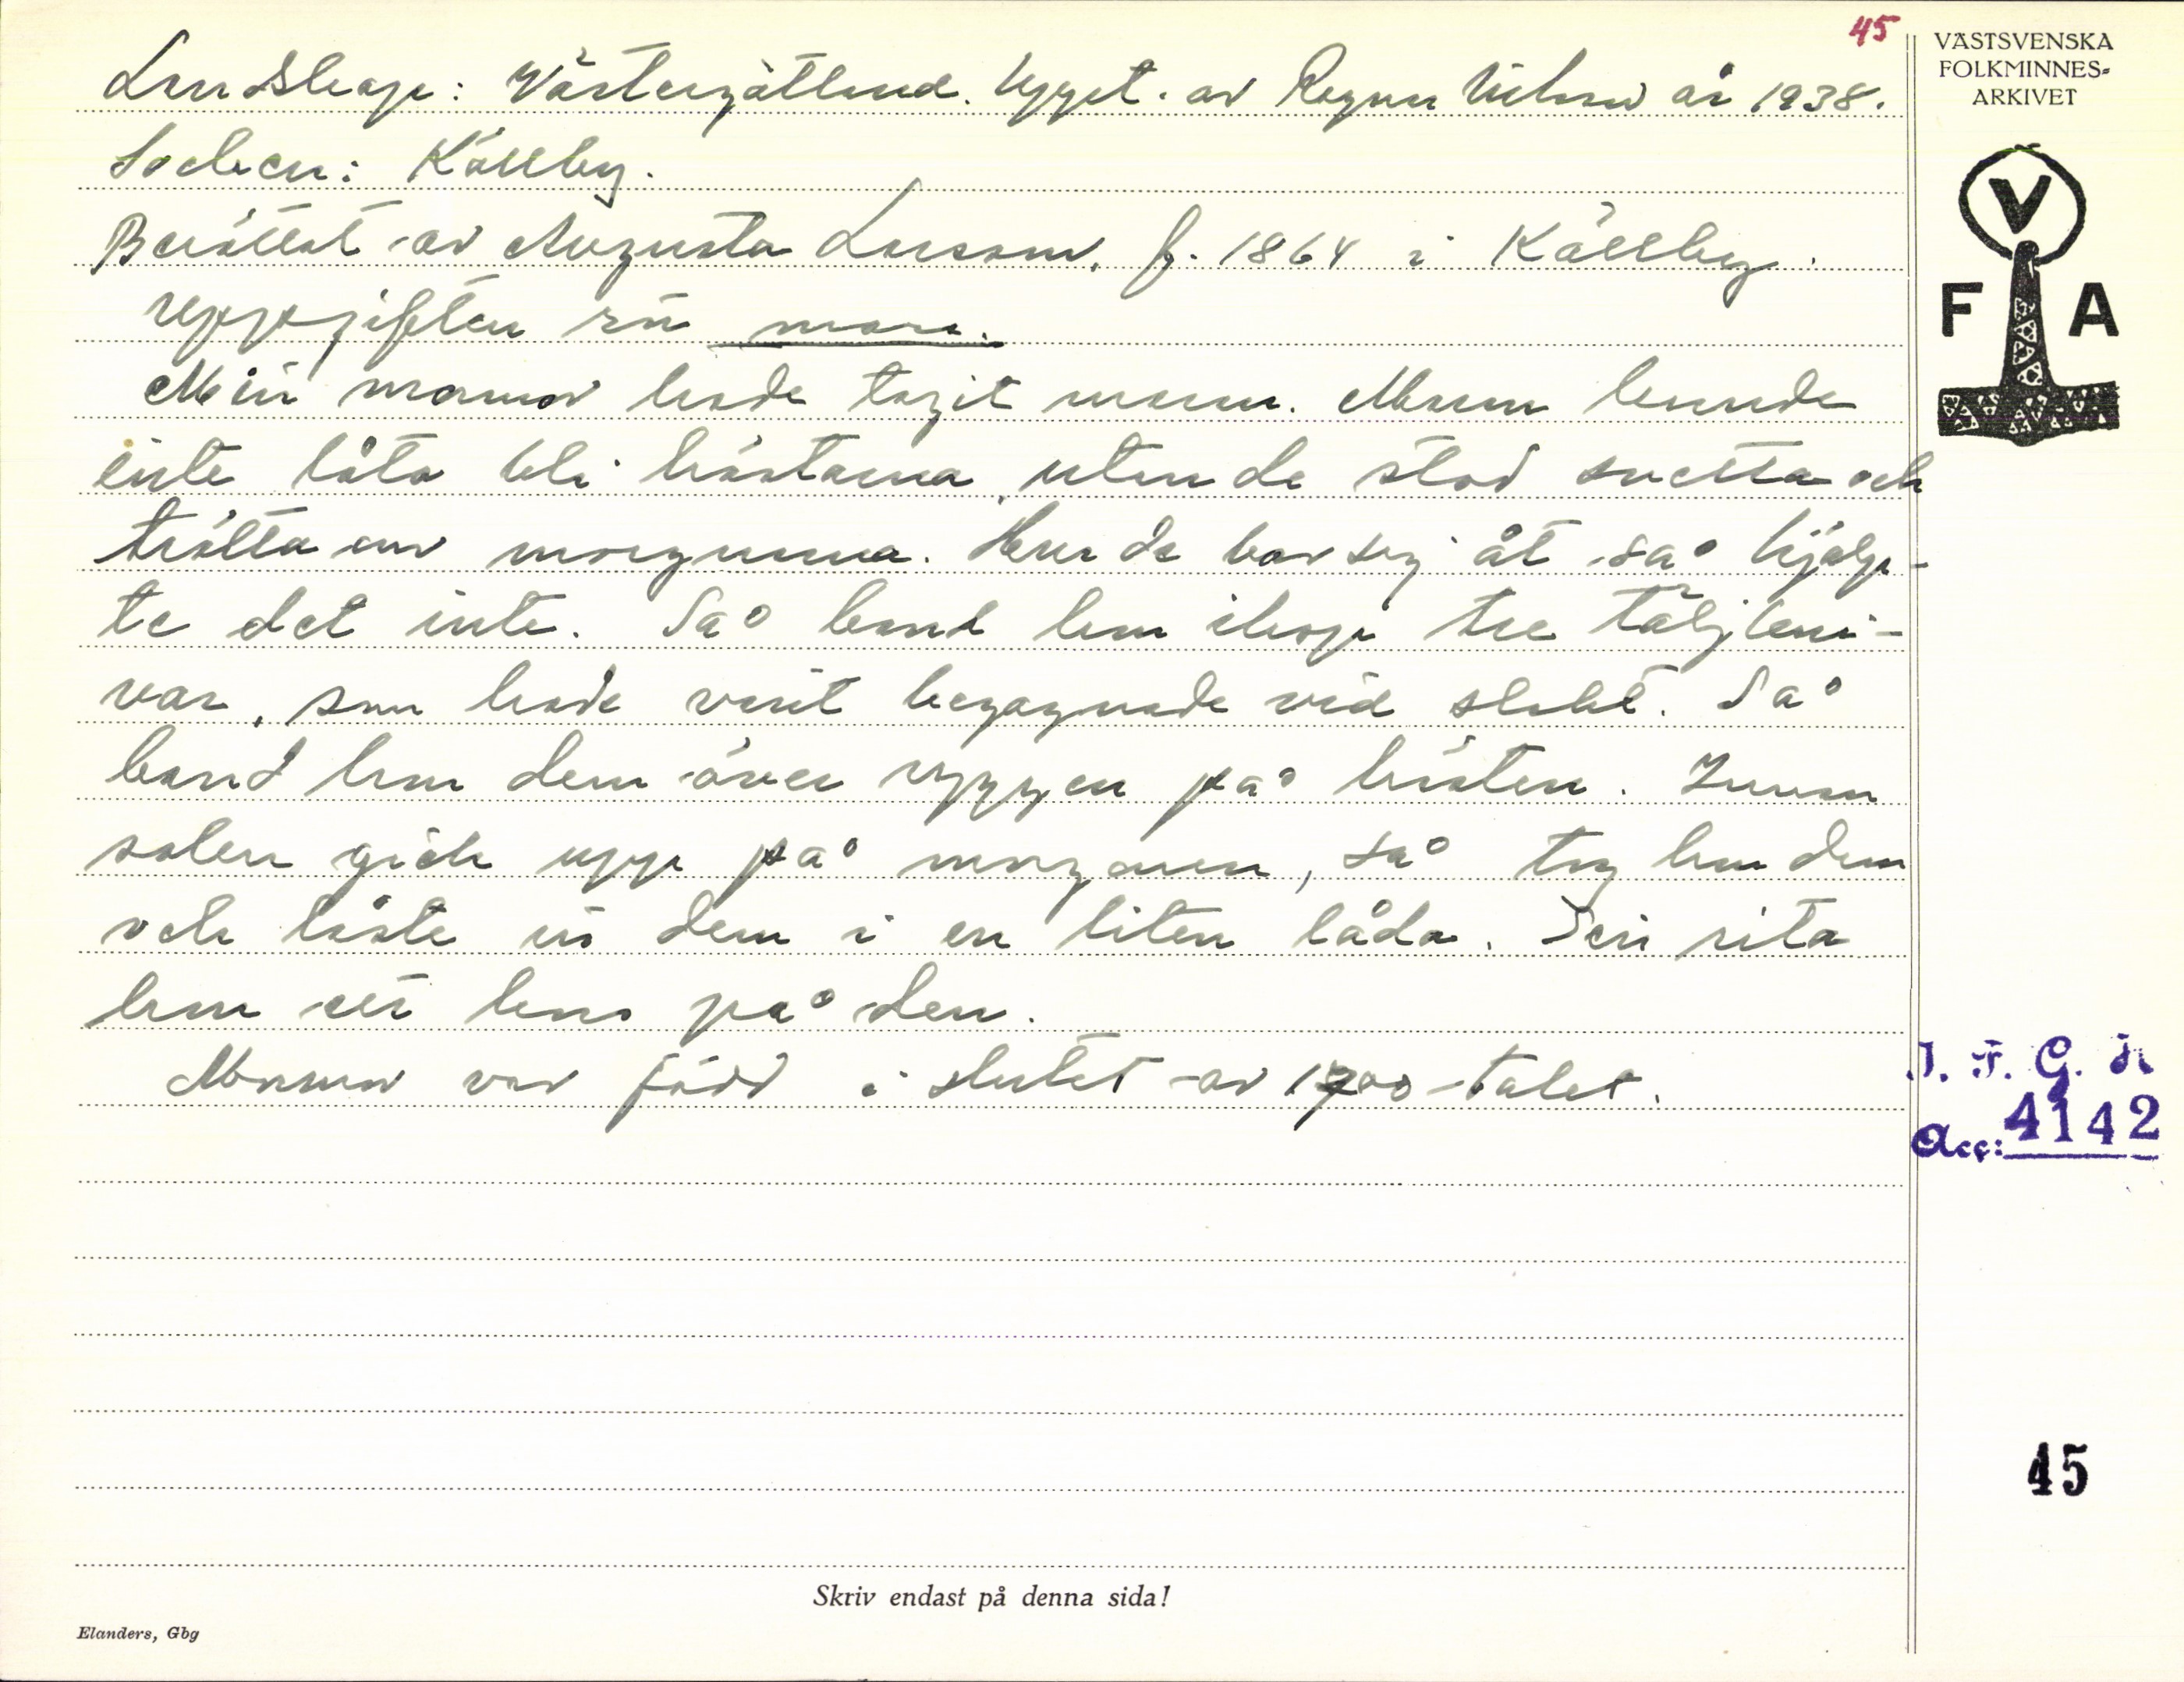 45
Landskap: Västergötland. Uppt. av Ragnar Nilsson år 1938.
Socken: Källby.
Berättat av Augusta Larsson, f. 1864 i Källby.
Uppgiften rör mara.
Min mormor hade tagit maran. Maran kunde
inte låta bli hästarna, utan de stod svetta och
trötta om morgnarna. Hur de bar sej åt så hjälp-
te det inte. Så band hon ihop tre täljkni-
var, som hade varit begagnade vid slakt. Så
band hon dem över ryggen på hästen. Innan
solen gick upp på morgonen, så tog hon dem
och låste in dem i en liten låda. Sen rita
hon ett kors på den.
Mormor var född i slutet av 1700-talet.
VÄSTSVENSKA
FOLKMINNES-
ARKIVET
V
F A
I. F. G. H.
Acc: 4142
45
Skriv endast på denna sida!
Elanders, Gbg